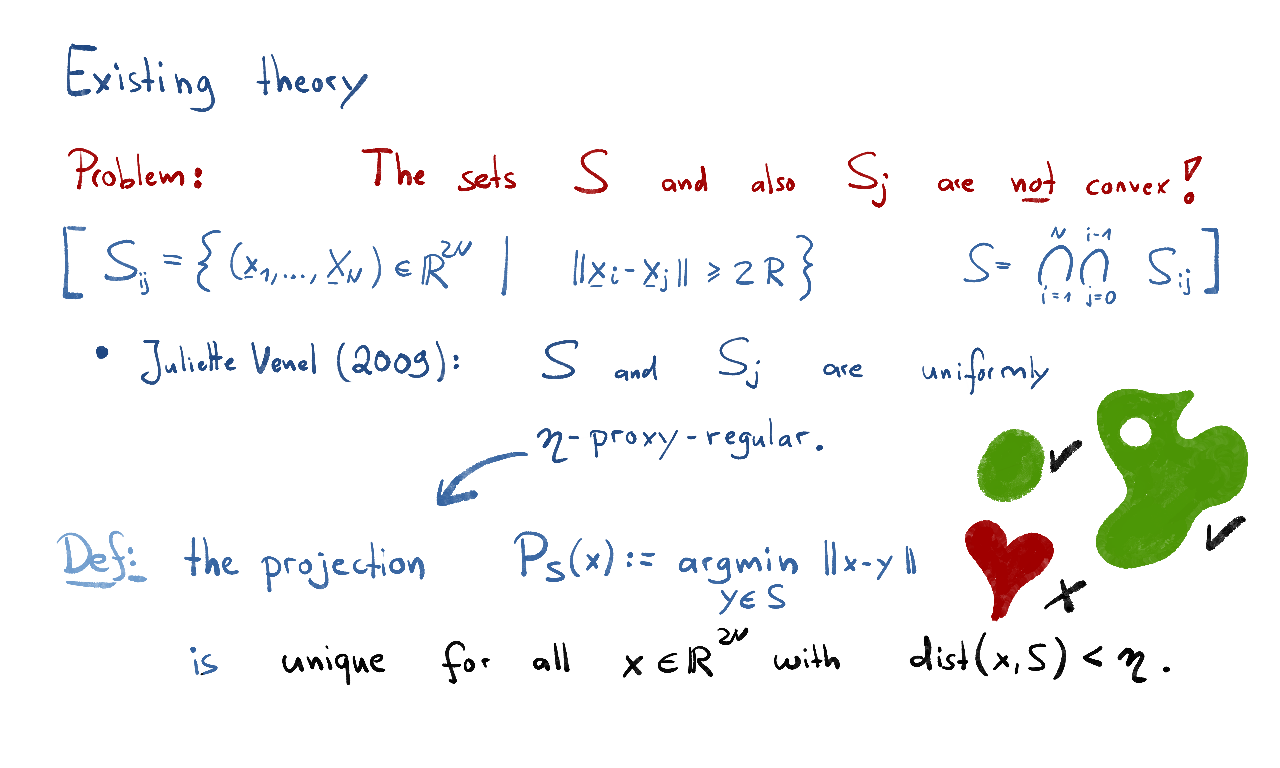 Existing theory
Problem: The sets S and also Sj are not convex!
[ Sij = { (x1,..., XN) ∈ ℝ^2N | ||xi-xj|| ⩾ 2R } S= ⋂_{i=1}^{N} ⋂_{j=0}^{i-1} Sij ]
• Juliette Venel (2009): S and Sj are uniformly
η-proxy-regular.
Def: the projection Ps(x) := argmin ||x-y||
y∈S
is unique for all x ∈ ℝ^2N with dist(x,S) < η.